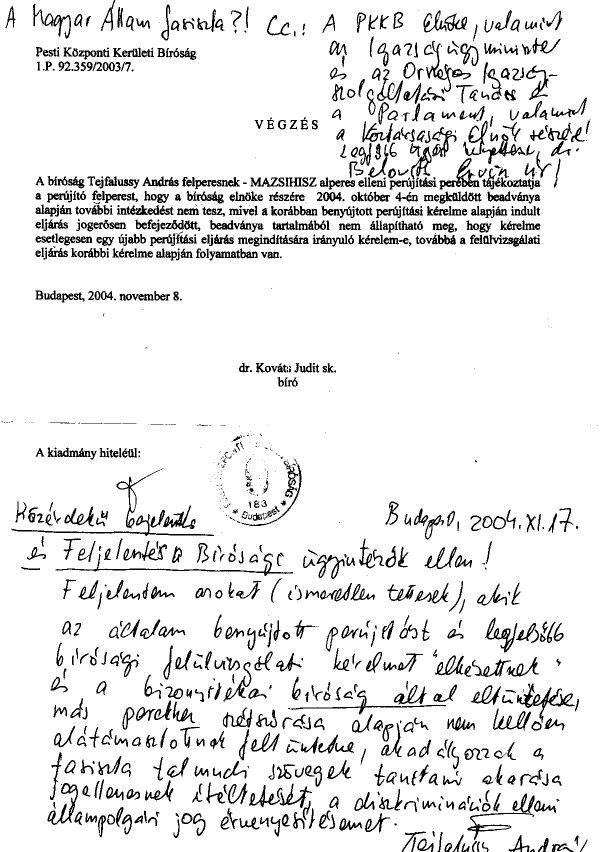 A Magyar Állam fasiszta?! Cc.: A PKKB Elnöke, valamint
az Igazságügyminiszter
és az Országos Igazság-
szolgáltatási Tanács és
a Parlament, valamint
a Köztársasági Elnök részére!
Legfőbb ügyész dr.
Belovics Ervin Úr!
Pesti Központi Kerületi Bíróság
1.P. 92.359/2003/7.
VÉGZÉS
A bíróság Tejfalussy András felperesnek - MAZSIHISZ alperes elleni perújítási perében tájékoztatja
a perújító felperest, hogy a bíróság elnöke részére 2004. október 4-én megküldött beadványa
alapján további intézkedést nem tesz, mivel a korábban benyújtott perújítási kérelme alapján indult
eljárás jogerősen befejeződött, beadványa tartalmából nem állapítható meg, hogy kérelme
esetlegesen egy újabb perújítási eljárás megindítására irányuló kérelem-e, továbbá a felülvizsgálati
eljárás korábbi kérelme alapján folyamatban van.
Budapest, 2004. november 8.
dr. Kováts Judit sk.
bíró
A kiadmány hiteléül:
183
Budapest
Közérdekű bejelentés
Budapest, 2004.XI.17.
és Feljelentés a Bírósági ügyintézők ellen!
Feljelentem azokat (ismeretlen tettesek), akik
az általam benyújtott perújítást és legfelsőbb
bírósági felülvizsgálati kérelmet "elkésettnek"
és a bizonyítékai bíróság által eltüntetése,
más perekben szétszórása alapján nem kellően
alátámasztottnak feltüntetve, akadályozzák a
fasiszta talmudi szövegek tanítani akarása
jogellenesnek ítéltetését, a diszkriminációk elleni
állampolgári jog érvényesítésemet.
Tejfalussy András